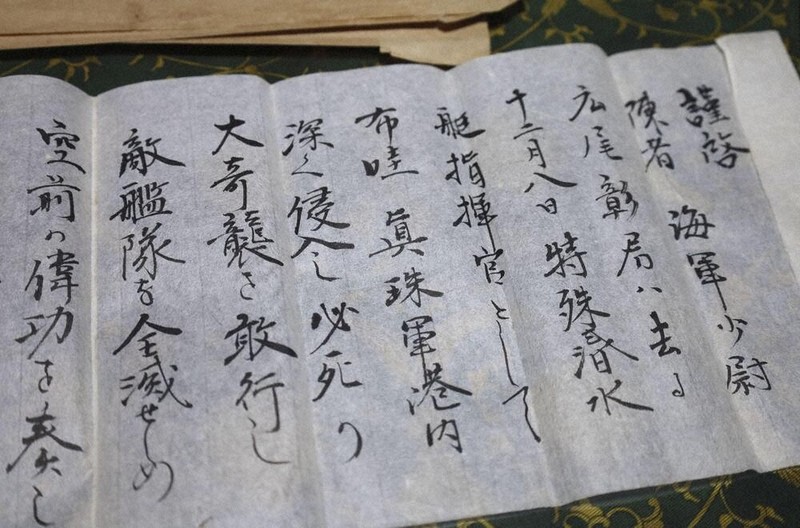 謹啓
陳者 海軍少尉
広尾彰君ハ去る
十二月八日特殊潜水
艇指揮官として
布哇眞珠軍港内
深く侵入し必死の
大奇襲を敢行し
敵艦隊を全滅せしめ
空前の偉功を奏し